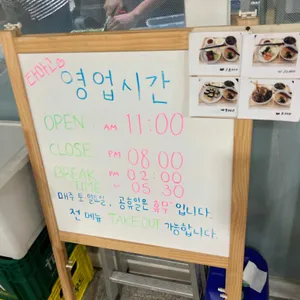 영업시간
OPEN AM 11:00
CLOSE PM 08:00
BREAK PM 02:00
TIME ~ 05:30
매주 토요일, 공휴일은 휴무입니다.
전 메뉴 TAKE OUT 가능합니다.